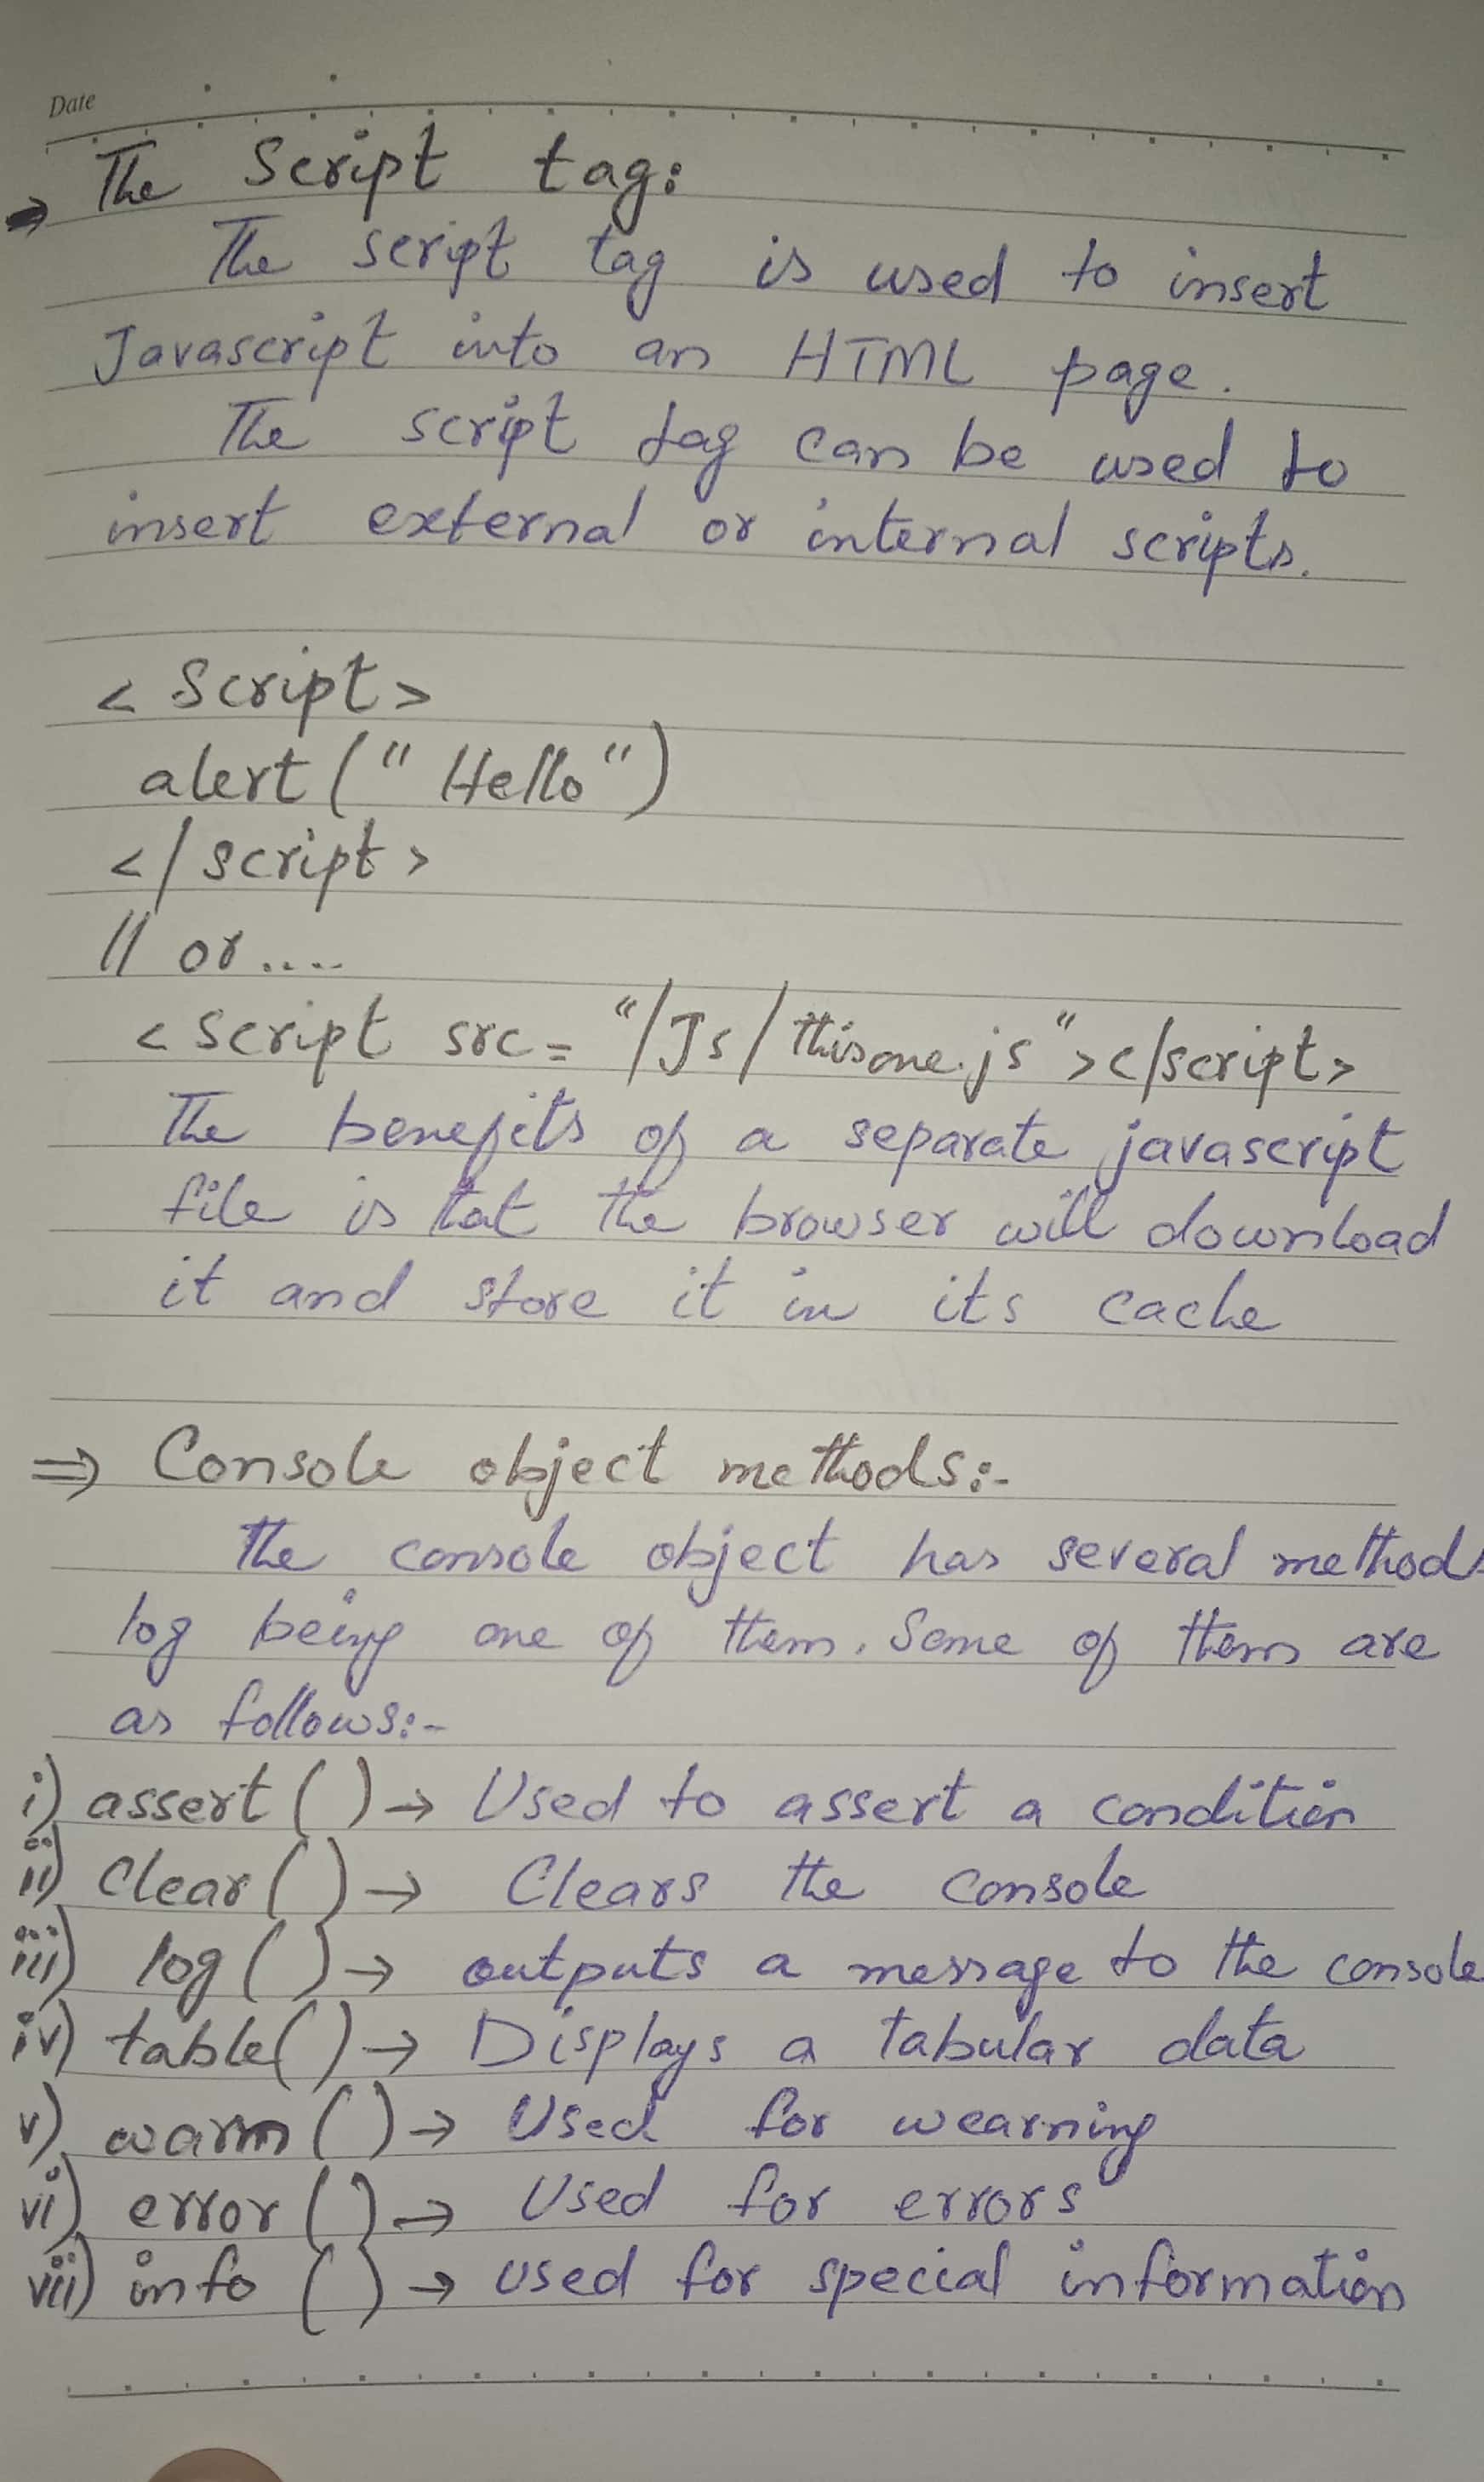 Date
→ The Script tag:
The script tag is used to insert
Javascript into an HTML page.
The script tag can be used to
insert external or internal scripts.
< Script>
alert (" Hello")
</ script>
// or ....
< Script src = "/Js/thisone.js"></script>
The benefits of a separate javascript
file is tat the browser will download
it and store it in its cache
⇒ Console object methods:-
The console object has several methods
log being one of them. Some of them are
as follows:-
i) assert ( ) → Used to assert a condition
ii) Clear ( ) → Clears the console
iii) log ( ) → outputs a message to the console
iv) table( ) → Displays a tabular data
v) warn ( ) → Used for wearning
vi) error ( ) → Used for errors
vii) info ( ) → used for special information